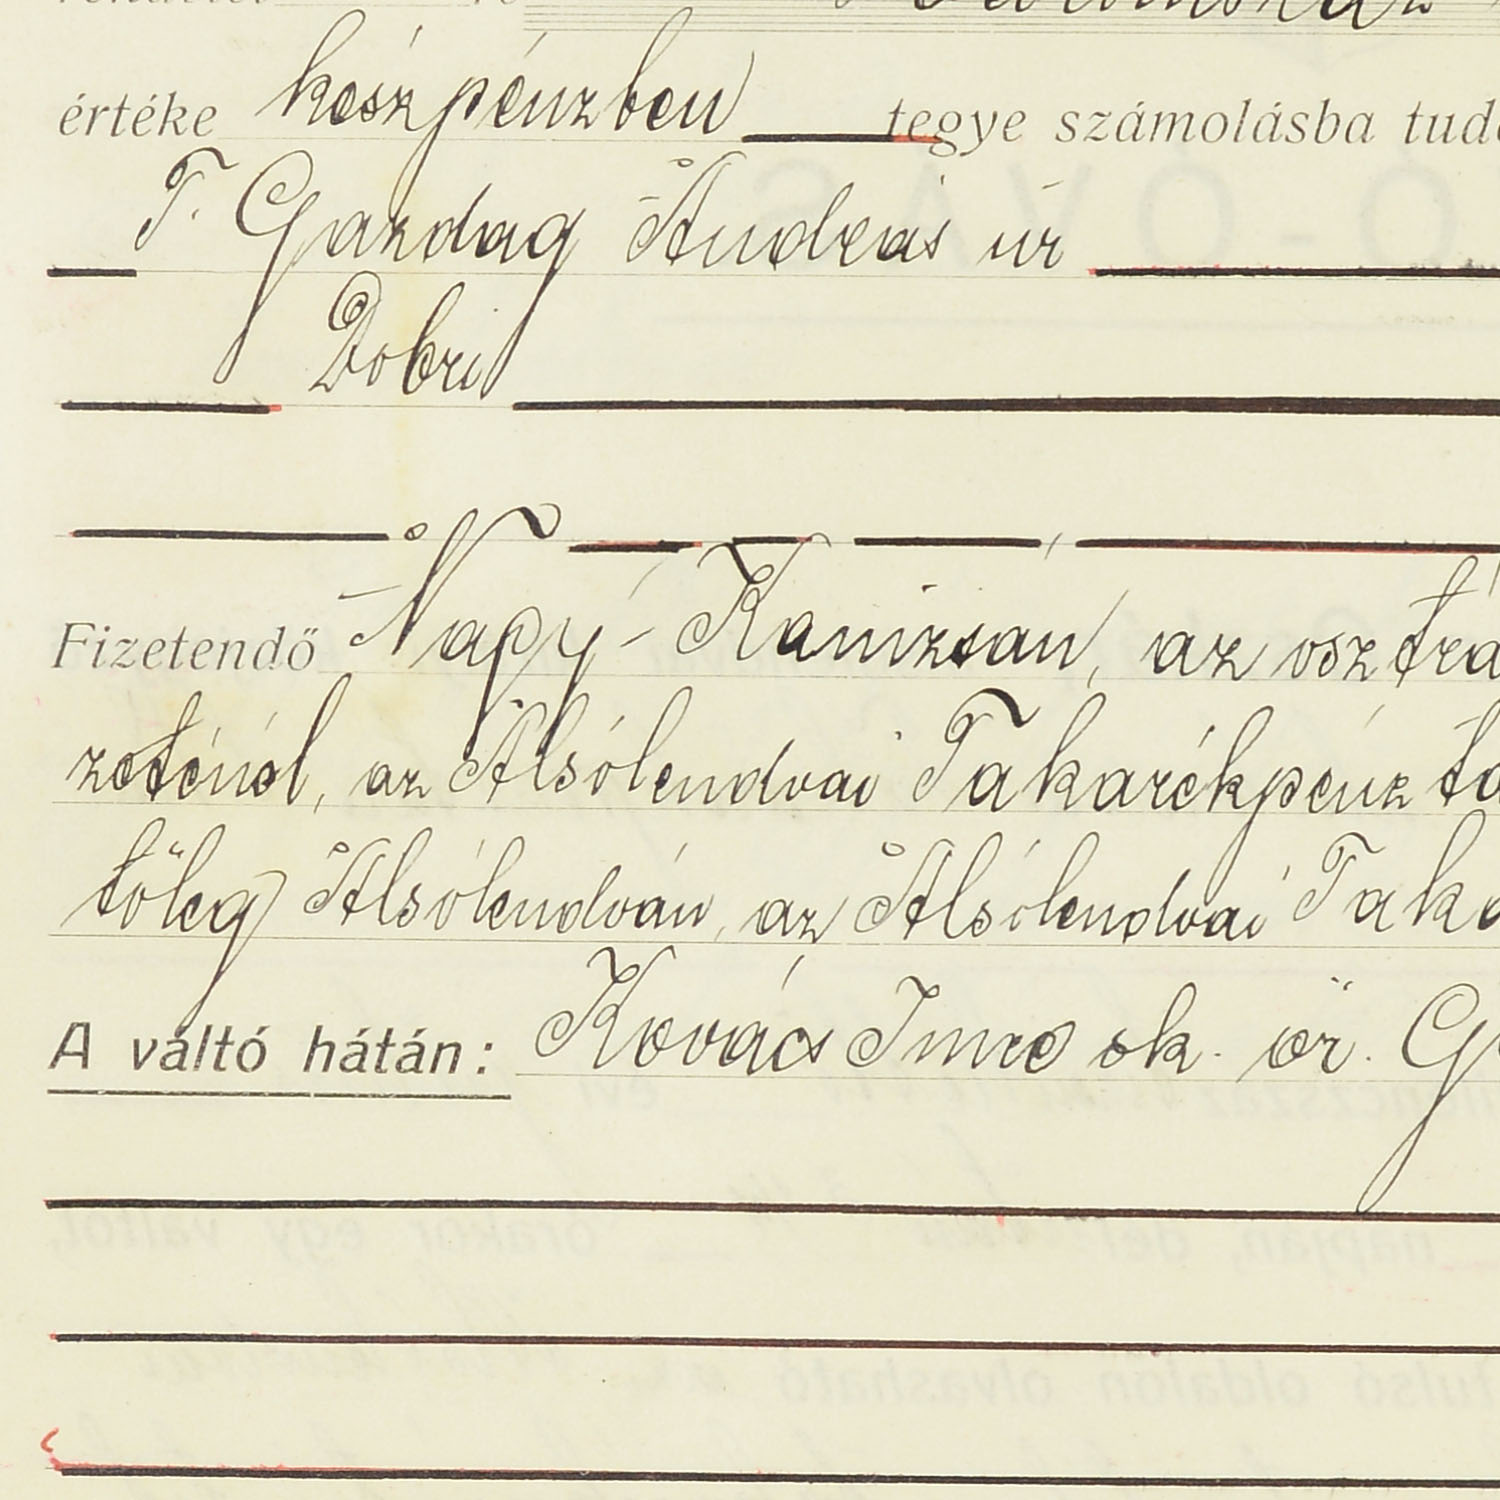 értéke készpénzben tegye számolásba tudó
T. Gazdag András úr
Dobri
Fizetendő Nagy-Kanizsán, az osztrá
zeténél, az Alsólendvai Takarékpénztá
tőleg Alsólendván, az Alsólendvai Taka
A váltó hátán: Kovács Imre sk. ör. G